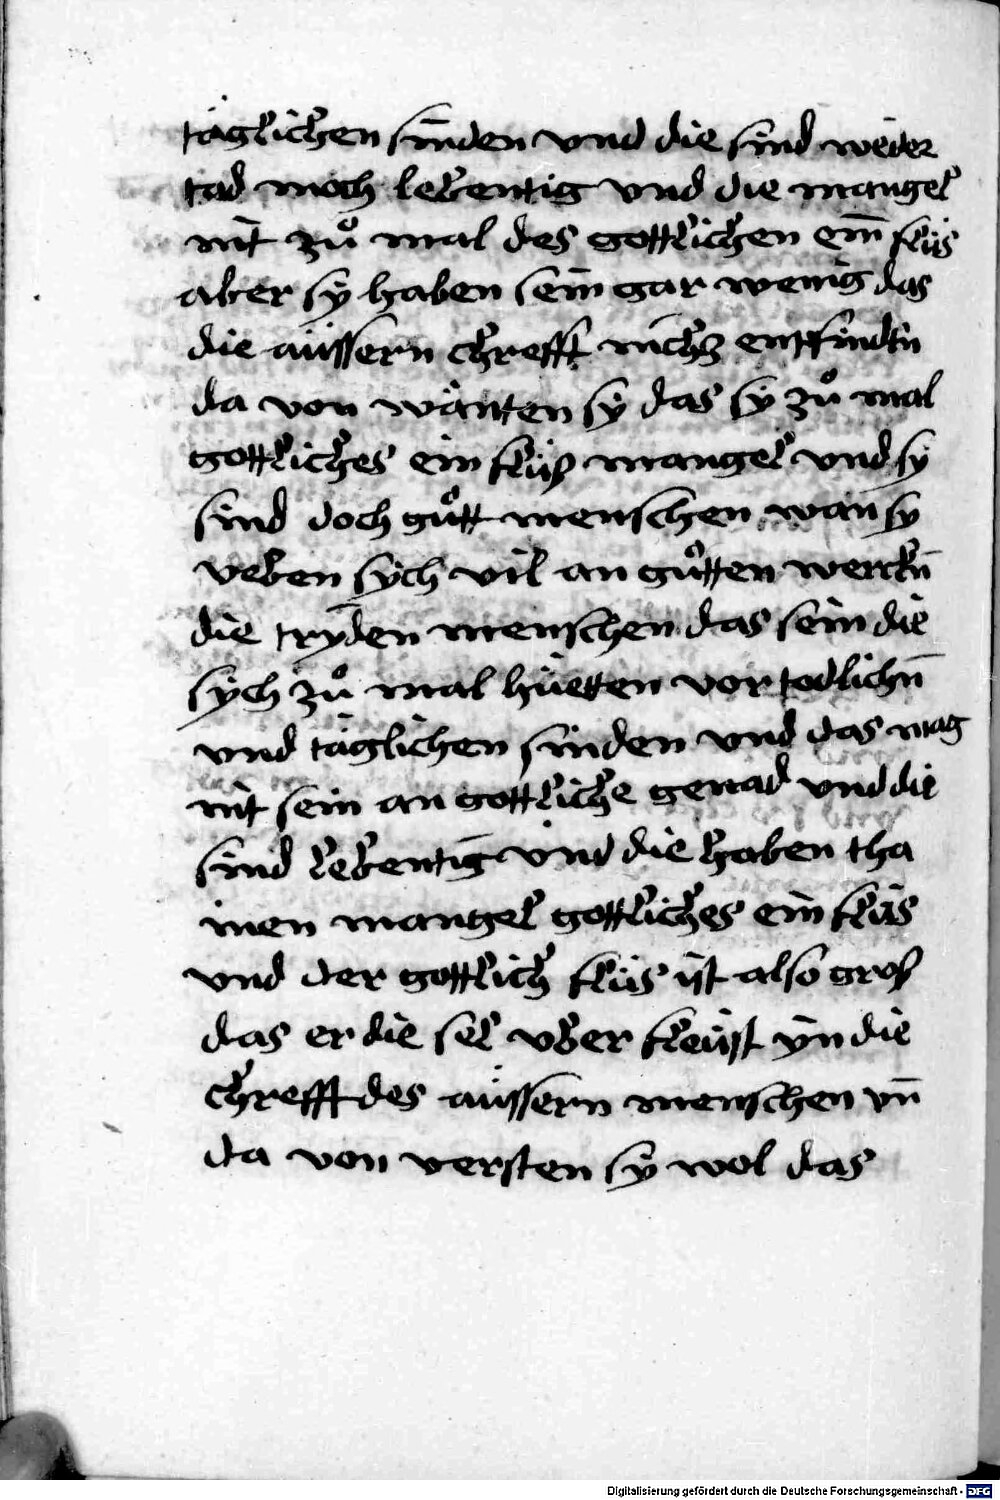 täglichen sinden vnd die sind weder
tad noch lebentig vnd die mangel
nit zuͦ mal des gottlichen ein̄ flüs
aber sy haben sein gar wenig das
die aüssern chrefft nichcz entpfindn̄
da von wänten sy das sy zuͦ mal
gottliches ein flüß mangel vnd sy
sind doch guͦtt menschen wan sy
veben sych vil an guͦtten werckn̄
die tryden menschen das sein die
sych zuͦ mal hüetten vor todlichn̄
vnd täglichen sinden vnd das mag
nit sein an gottliche genad vnd die
sind lebentig vnd die haben cha
inen mangel gottliches ein flüs
vnd der gottlich flüs ist also gros
das er die sel vber fleüst yn die
chrefft des aüssern menschen vn̄
da von versten sy wol das
Digitalisierung gefördert durch die Deutsche Forschungsgemeinschaft - DFG